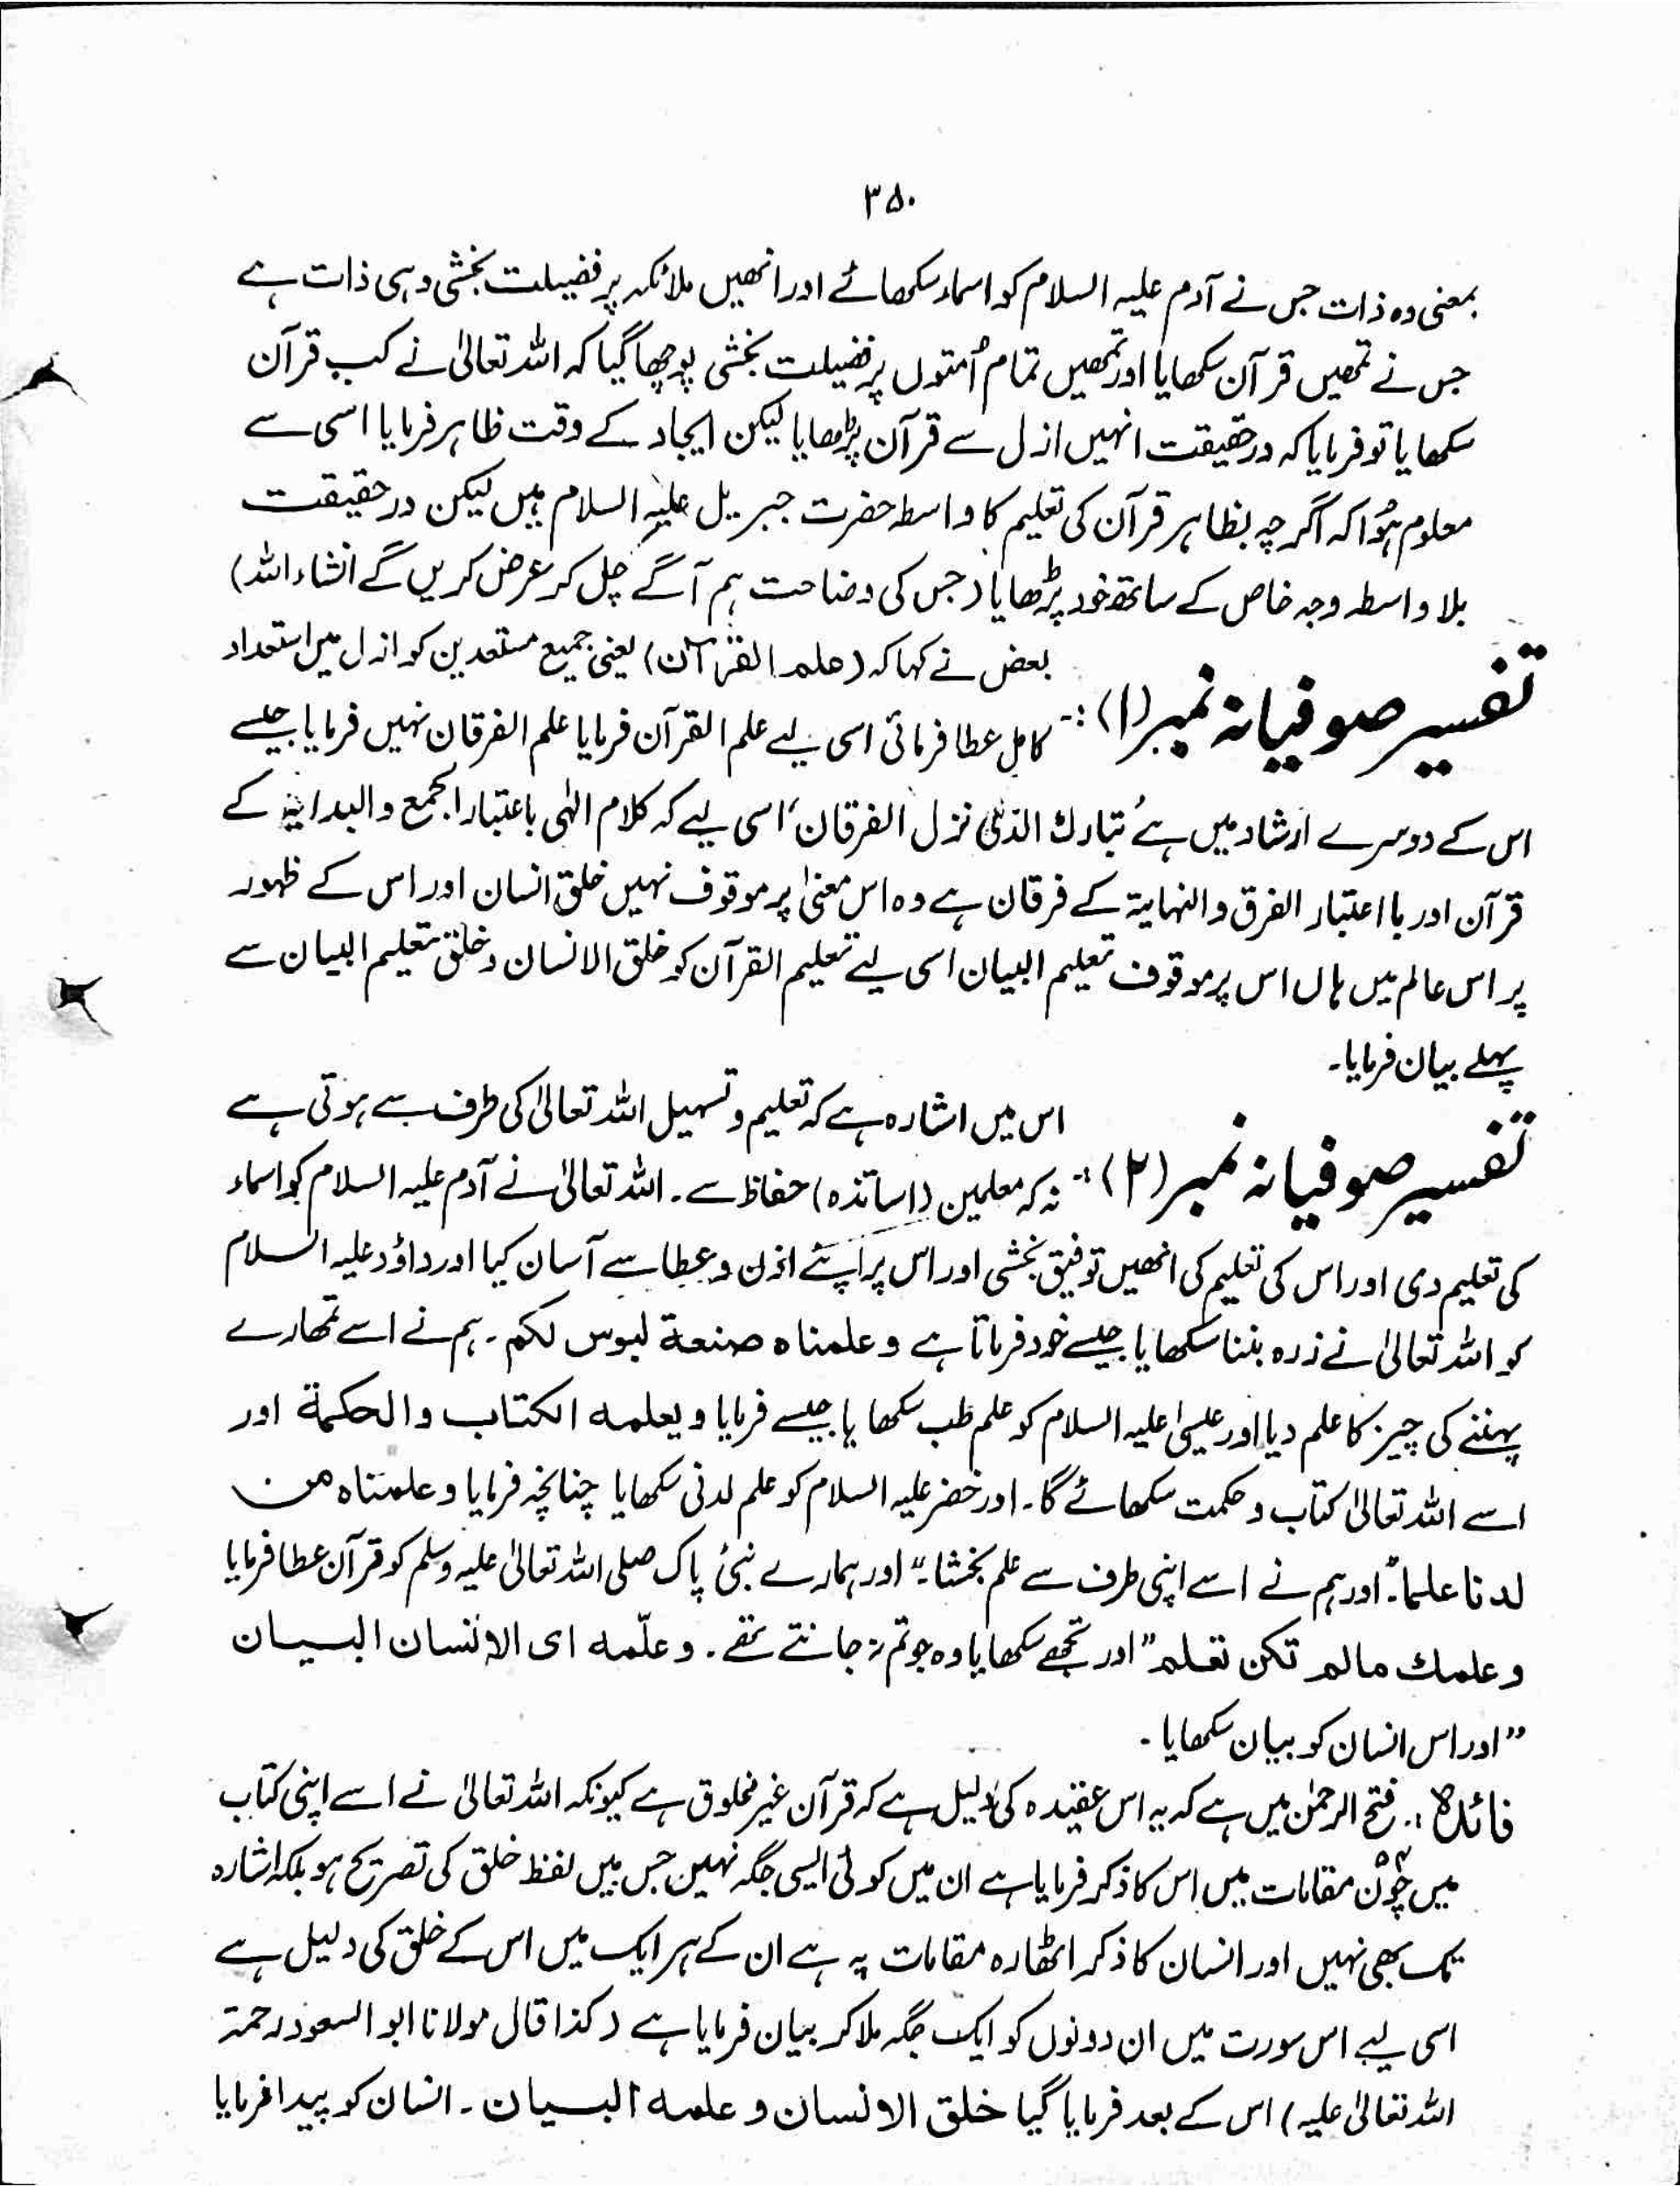 ۳۵۰
بمعنی وہ ذات جس نے آدم علیہ السلام کو اسماء سکھائے اور انھیں ملائکہ پر فضیلت بخشی وہی ذات ہے
جس نے تمھیں قرآن سکھایا اور تمھیں تمام اُمتوں پر فضیلت بخشی پوچھا گیا کہ اللہ تعالیٰ نے کب قرآن
سکھایا تو فرمایا کہ درحقیقت انہیں ازل سے قرآن پڑھایا لیکن ایجاد کے وقت ظاہر فرمایا اسی سے
معلوم ہُوا کہ اگرچہ بظاہر قرآن کی تعلیم کا واسطہ حضرت جبریل علیہ السلام ہیں لیکن درحقیقت
بلا واسطہ وجہ خاص کے ساتھ خود پڑھایا (جس کی وضاحت ہم آگے چل کر عرض کریں گے انشاء اللہ)
تفسیر صوفیانہ نمبر (۱) :- بعض نے کہا کہ (علم القرآن) یعنی جمیع مستعدین کو ازل میں استعداد
کامل عطا فرمائی اسی لیے علم القرآن فرمایا علم الفرقان نہیں فرمایا جیسے
اس کے دوسرے ارشاد میں ہے تبارك الذی نزل الفرقان، اسی لیے کہ کلام الٰہی باعتبار الجمع والبدایۃ کے
قرآن اور با اعتبار الفرق والنہایۃ کے فرقان ہے وہ اس معنیٰ پر موقوف نہیں خلق انسان اور اس کے ظہور
پر اس عالم میں ہاں اس پر موقوف تعلیم البیان اسی لیے تعلیم القرآن کو خلق الانسان و خلق تعلیم البیان سے
پہلے بیان فرمایا۔
تفسیر صوفیانہ نمبر (۲) :- اس میں اشارہ ہے کہ تعلیم و تسہیل اللہ تعالیٰ کی طرف سے ہوتی ہے
نہ کہ معلمین (اساتذہ) حفاظ سے۔ اللہ تعالیٰ نے آدم علیہ السلام کو اسماء
کی تعلیم دی اور اس کی تعلیم کی انھیں توفیق بخشی اور اس پر اپنے اذن و عطا سے آسان کیا اور داؤد علیہ السلام
کو اللہ تعالیٰ نے زرہ بننا سکھایا جیسے خود فرماتا ہے وعلمناه صنعة لبوس لکم۔ ہم نے اسے تمھارے
پہننے کی چیز کا علم دیا اور عیسیٰ علیہ السلام کو علم طب سکھایا جیسے فرمایا ویعلمه الکتاب والحکمة اور
اسے اللہ تعالیٰ کتاب و حکمت سکھائے گا۔ اور خضر علیہ السلام کو علم لدنی سکھایا چنانچہ فرمایا وعلمناه من
لدنا علما۔ "اور ہم نے اسے اپنی طرف سے علم بخشا۔" اور ہمارے نبیٔ پاک صلی اللہ تعالیٰ علیہ وسلم کو قرآن عطا فرمایا
وعلمك مالم تکن تعلم "اور تجھے سکھایا وہ جو تم نہ جانتے تھے۔ وعلّمه ای الانسان البیان
"اور اس انسان کو بیان سکھایا۔
فائدہ :۔ فتح الرحمٰن میں ہے کہ یہ اس عقیدہ کی دلیل ہے کہ قرآن غیر مخلوق ہے کیونکہ اللہ تعالیٰ نے اسے اپنی کتاب
میں چوّن ۵۴ مقامات میں اس کا ذکر فرمایا ہے ان میں کوئی ایسی جگہ نہیں جس میں لفظ خلق کی تصریح ہو بلکہ اشارہ
تک بھی نہیں اور انسان کا ذکر اٹھارہ مقامات پہ ہے ان کے ہر ایک میں اس کے خلق کی دلیل ہے
اسی لیے اس سورت میں ان دونوں کو ایک جگہ ملا کر بیان فرمایا ہے (کذا قال مولانا ابو السعود رحمۃ
اللہ تعالیٰ علیہ) اس کے بعد فرمایا گیا خلق الانسان وعلمه البیان۔ انسان کو پیدا فرمایا